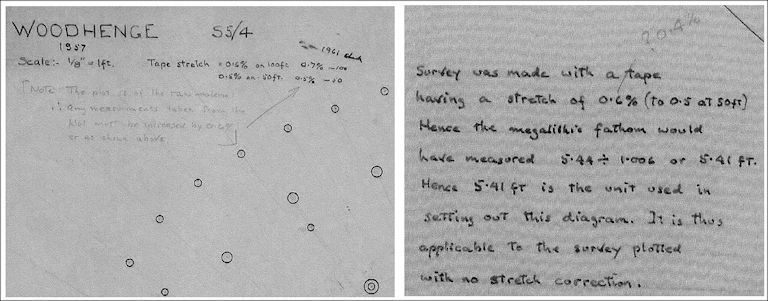 WOODHENGE S5/4
1957
1961
Scale:- 1/8" = 1ft. Tape stretch = 0.6% on 100ft 0.7% -100
0.5% on 50ft. 0.5% -50
[Note: The plot is of the raw
∴ Any measurements taken from the
must be increased by 0.6%
or as shown above
? 0.4%
Survey was made with a tape
having a stretch of 0.6% (to 0.5 at 50ft)
Hence the megalithic fathom would
have measured 5.44 ÷ 1.006 or 5.41 ft.
Hence 5.41 ft is the unit used in
setting out this diagram. It is thus
applicable to the survey plotted
with no stretch correction.